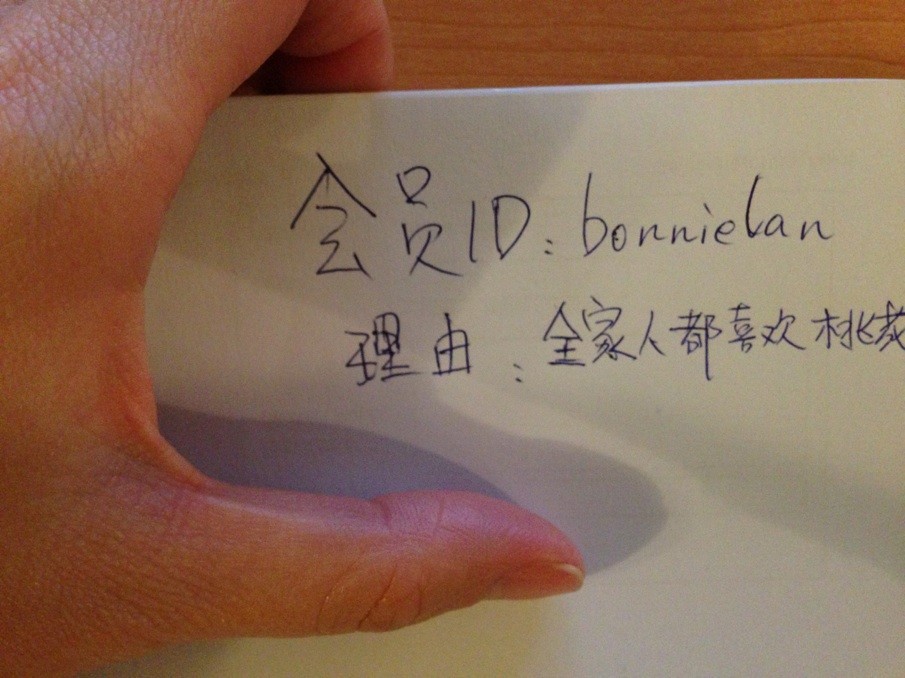 会员ID：bonnielan
理由：全家人都喜欢桃花